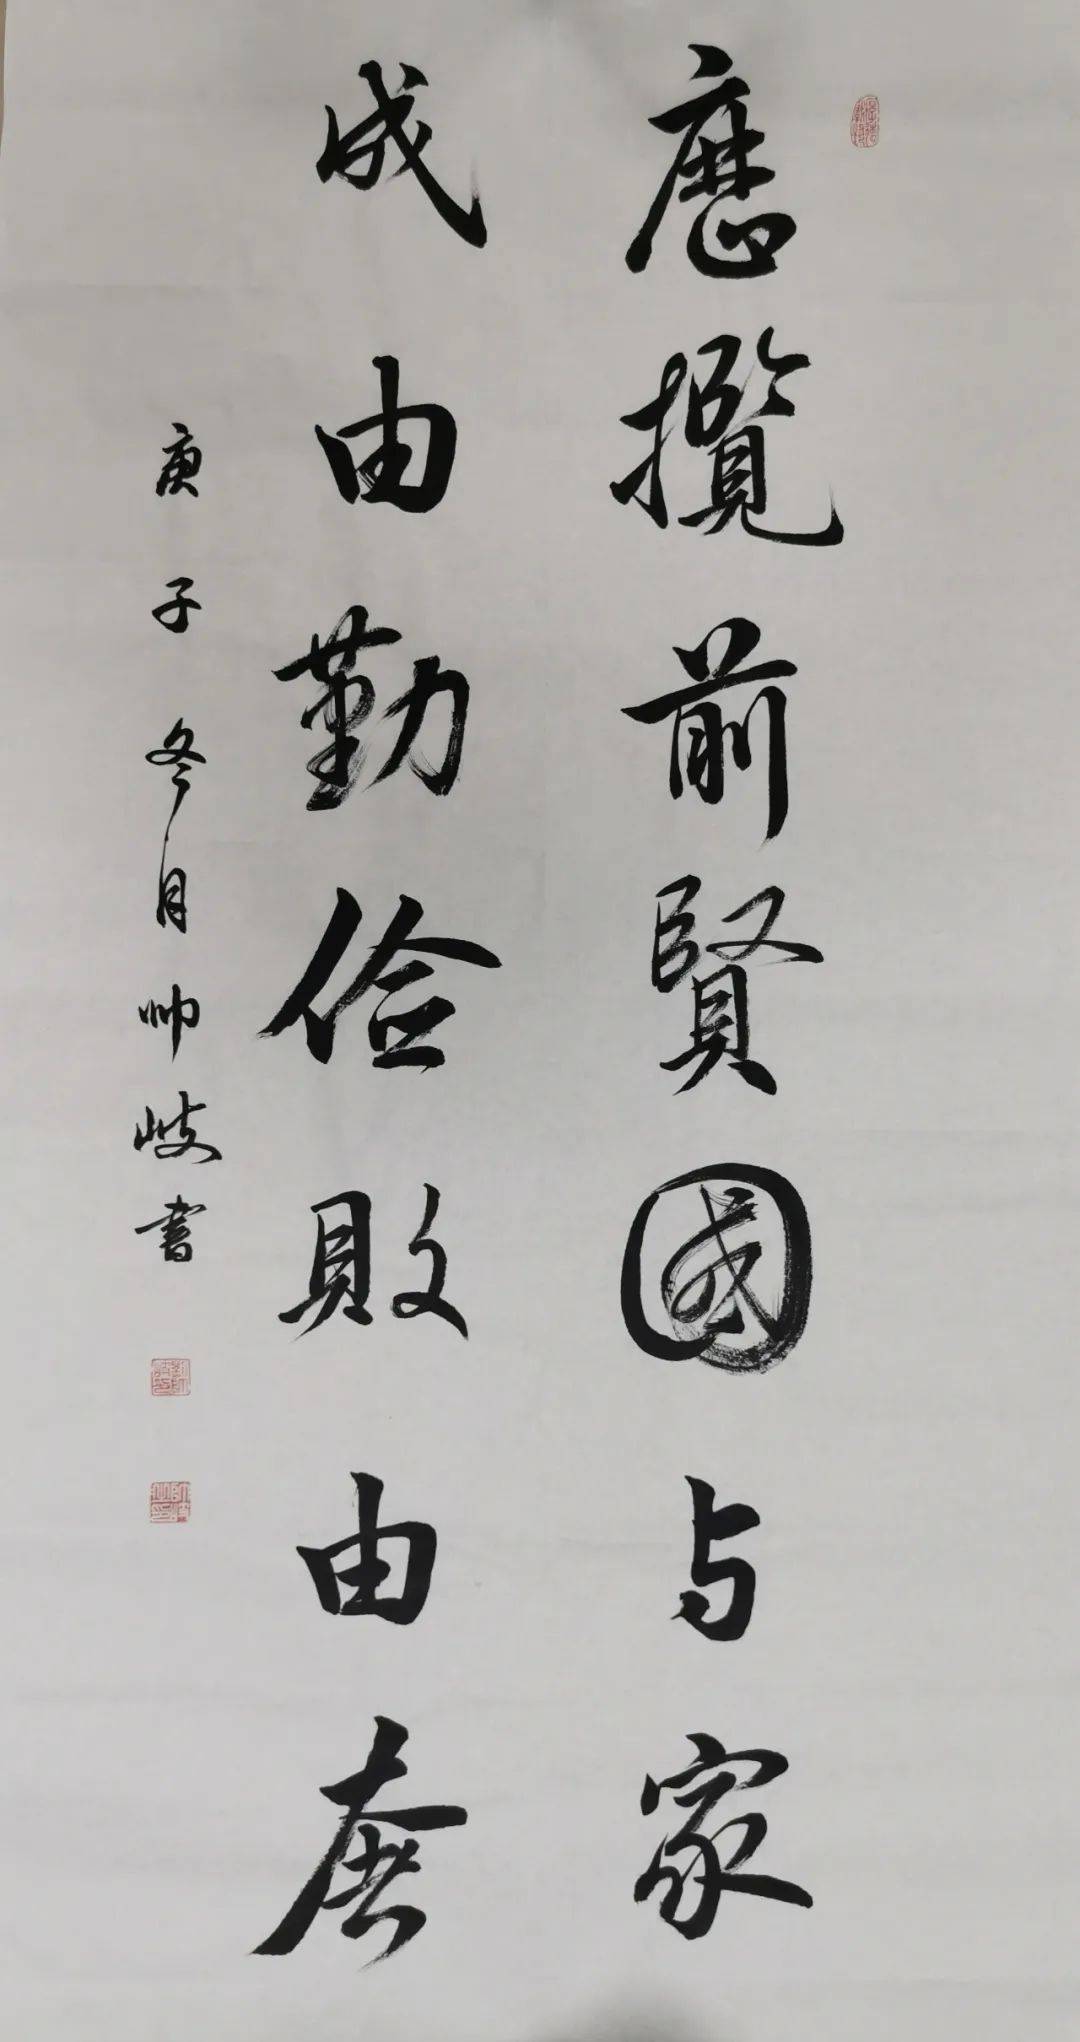 歷攬前賢國与家
成由勤儉敗由奢
庚子冬月帅岐書